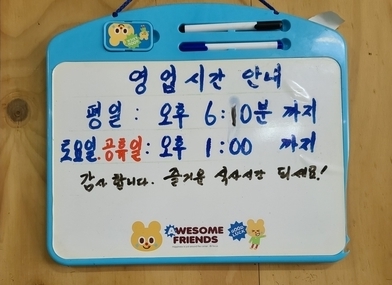 영업시간 안내
평일 : 오후 6:10분 까지
토요일.공휴일 : 오후 1:00 까지
감사합니다. 즐거운 식사시간 되세요!
AWESOME
FRIENDS
GOOD
LUCK